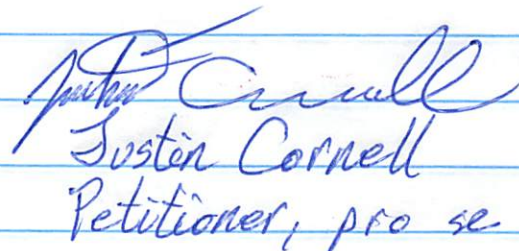 Justin Cornell
Justin Cornell
Petitioner, pro se